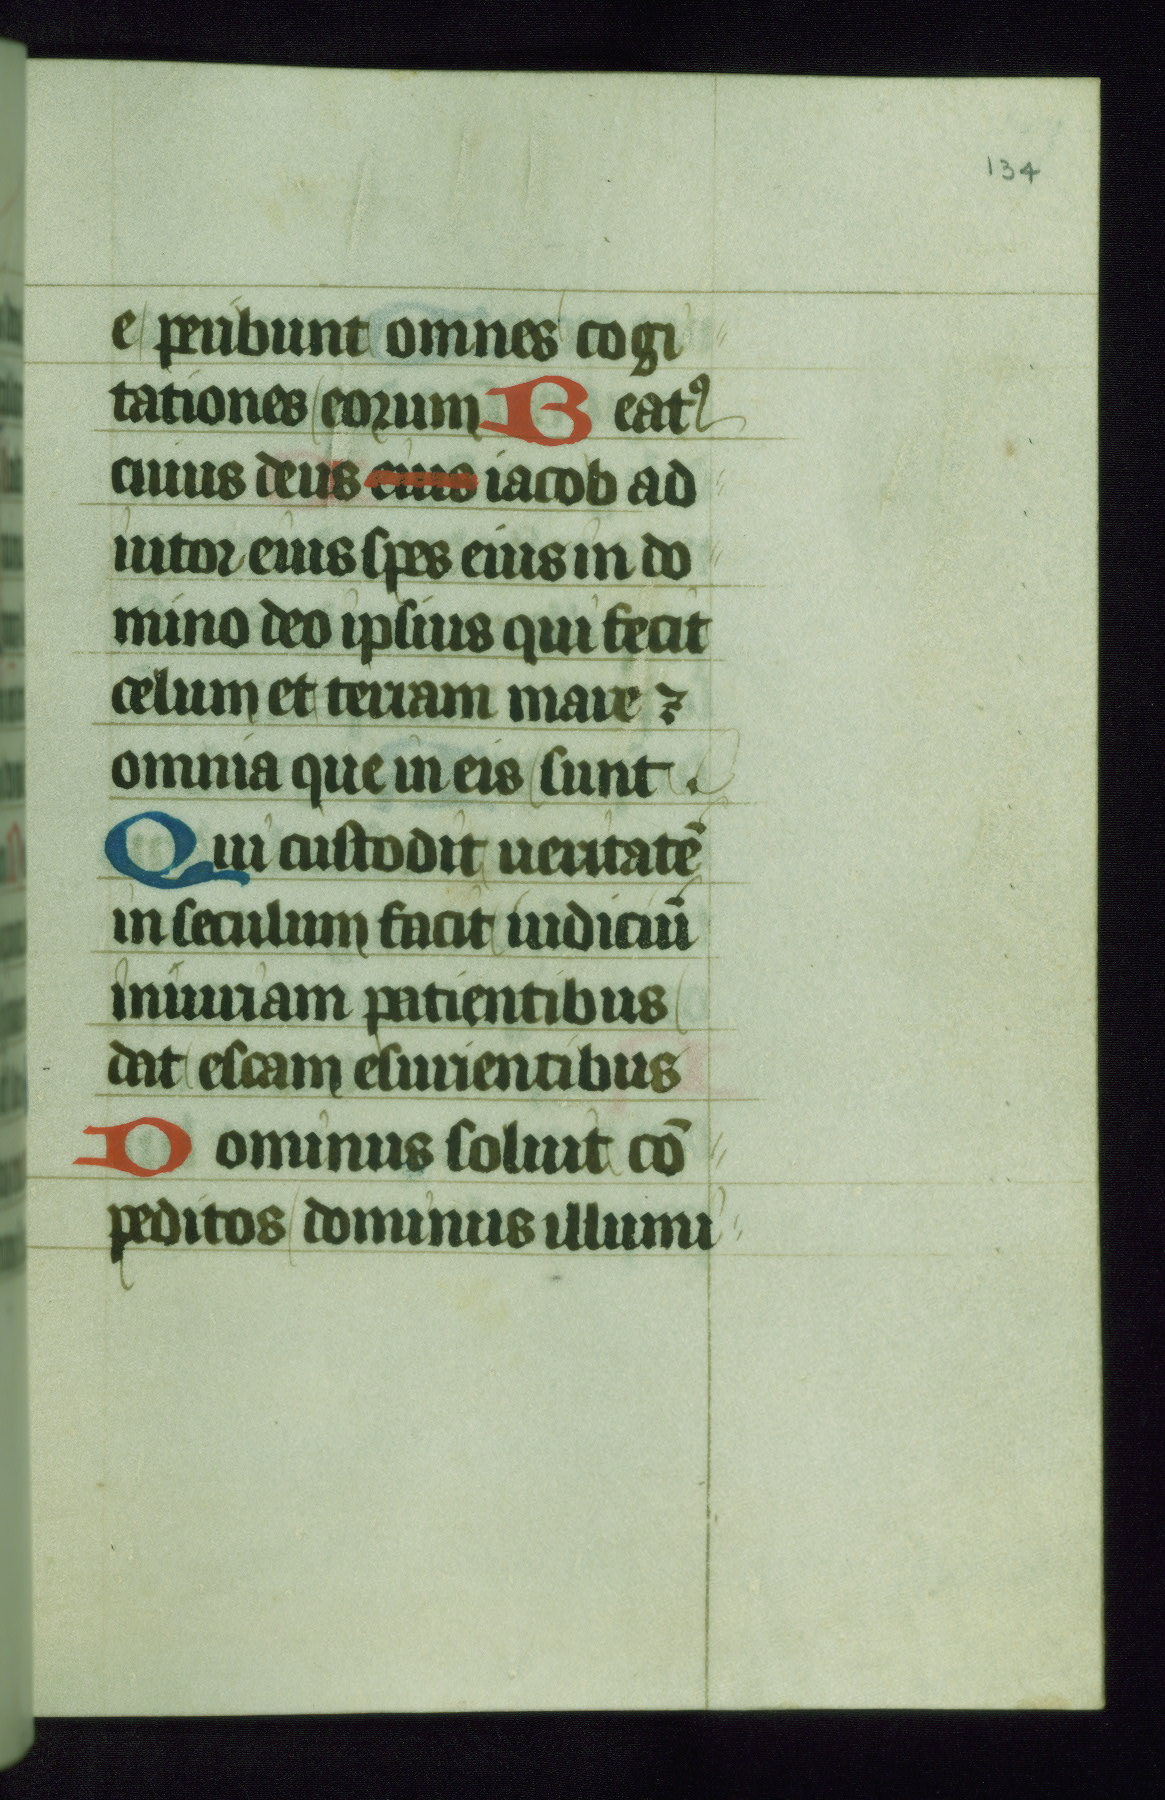 134
e peribunt omnes cogi
tationes eorum Beatꝯ
cuius deus cuius iacob ad
iutor eius spes eius in do
mino deo ipsius qui fecit
celum et terram mare ⁊
omnia que in eis sunt .
Qui custodit ueritatē
in seculum facit iudiciū
iniuriam patientibus
dat escam esurientibus
Dominus soluit cō
peditos dominus illumi